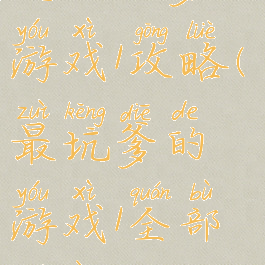 yóu xì gōng lüè
游戏/攻略(
zuì kēng diē de
最坑爹的
yóu xì quán bù
游戏/全部